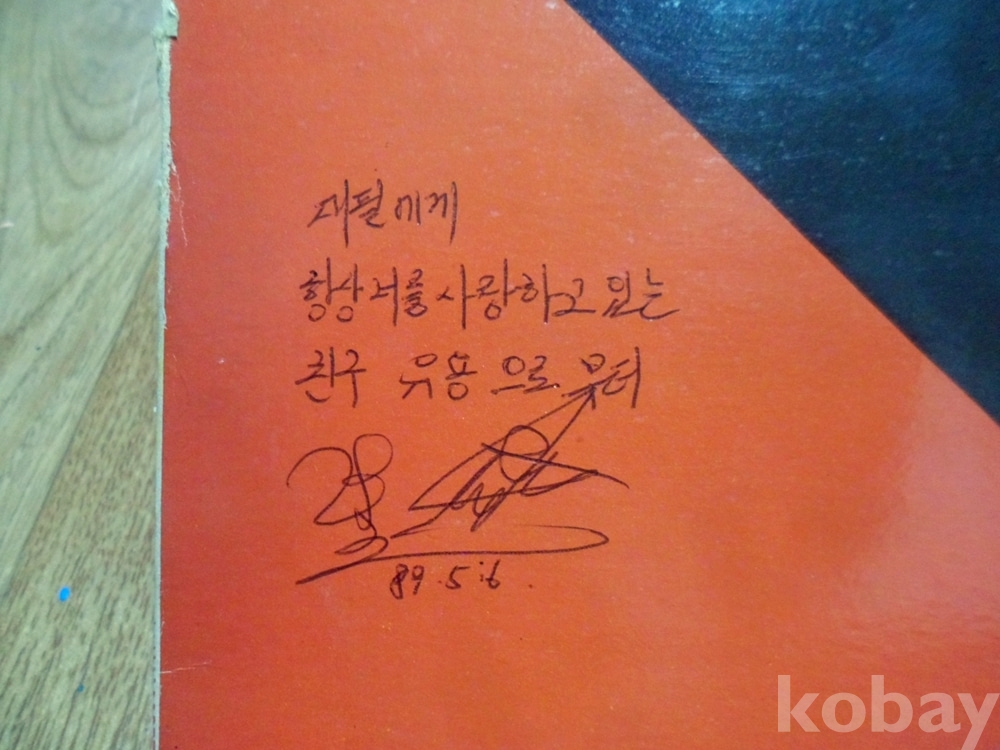 대필에게
항상 너를 사랑하고 있는
친구 유용으로부터
89.5.6.
kobay